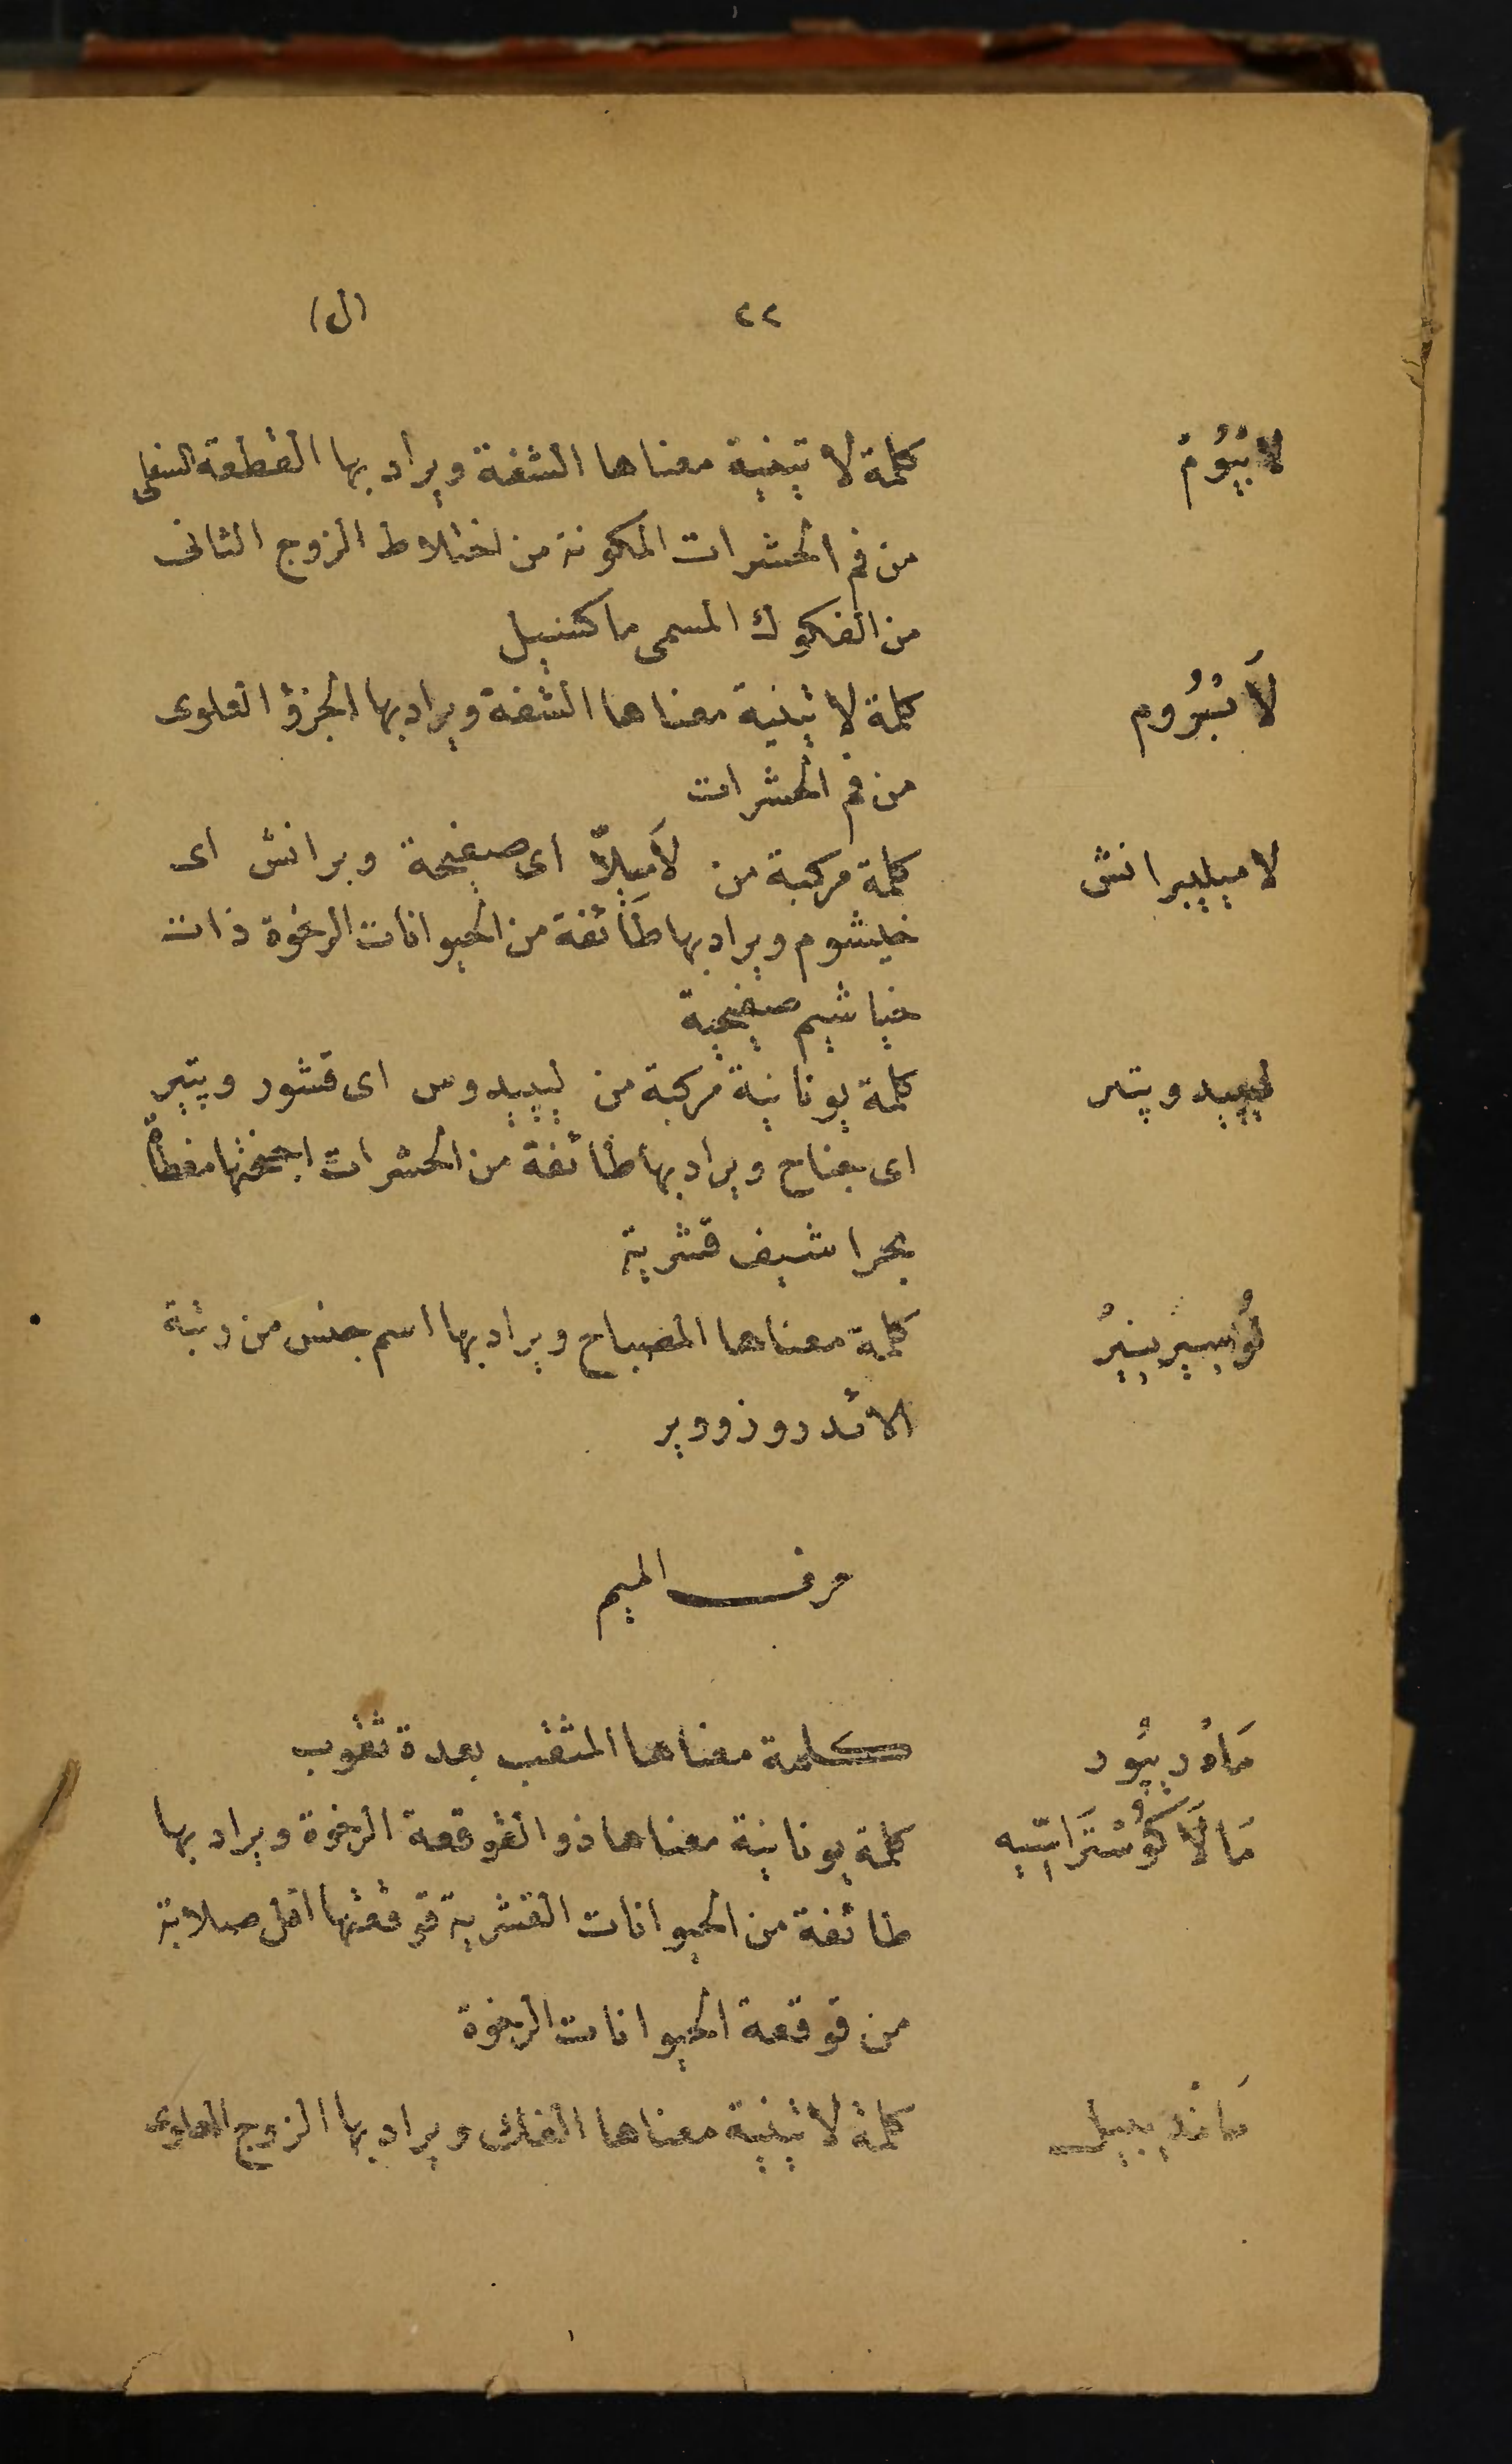 ٢٢ (ل)
لابْيُومْ كلمة لاتينية معناها الشفة ويراد بها القطعة السفلى
من فم الحشرات المكونة من اختلاط الزوج الثانى
من الفكوك المسمى ماكسيل
لَابْرُوم كلمة لاتينية معناها الشفة ويراد بها الجزؤ العلوى
من فم الحشرات
لاميليبرانش كلمة مركبة من لَاميلّا اى صفيحة وبرانش اى
خيشوم ويراد بها طائفة من الحيوانات الرخوة ذات
خياشيم صفيحية
ليپيدوپتر كلمة يونانية مركبة من ليپيدوس اى قشور وپتير
اى جناح ويراد بها طائفة من الحشرات اجنحتها مغطاة
بحراشيف قشرية
كلمة معناها المصباح ويراد بها اسم جنس من رتبة
حرف الميم
مَادْرِپُور كلمة معناها المثقب بعدة ثقوب
مَالَاكُوسْتَرَاسِيه كلمة يونانية معناها ذو القوقعة الرخوة ويراد بها
طائفة من الحيوانات القشرية قوقعتها اقل صلابة
من قوقعة الحيوانات الرخوة
مَانْدِيبيل كلمة لاتينية معناها الفك ويراد بها الزوج العلوى